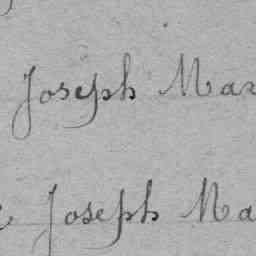 Joseph Max
Joseph Ma